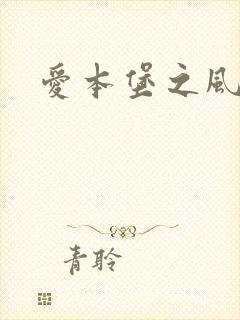 愛本堡之風
青聆